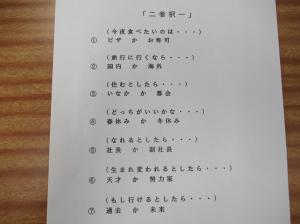 「二者択一」
(今夜食べたいのは・・・)
① ピザ か お寿司
(旅行に行くなら・・・)
② 国内 か 海外
(住むとしたら・・・)
③ いなか か 都会
(どっちがいいかな・・・)
④ 春休み か 冬休み
(なれるとしたら・・・)
⑤ 社長 か 副社長
(生まれ変われるとしたら・・・)
⑥ 天才 か 努力家
(もし行けるとしたら・・・)
⑦ 過去 か 未来